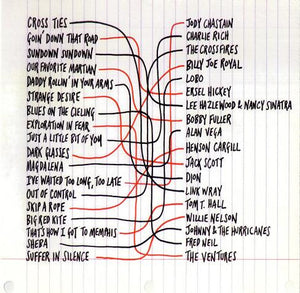 CROSS TIES
GOIN' DOWN THAT ROAD
SUNDOWN SUNDOWN
OUR FAVORITE MARTIAN
DADDY ROLLIN' IN YOUR ARMS
STRANGE DESIRE
BLUES ON THE CIELING
EXPLORATION IN FEAR
JUST A LITTLE BIT OF YOU
DARK GLASSES
MAGDALENA
I'VE WAITED TOO LONG, TOO LATE
OUT OF CONTROL
SKIP A ROPE
BIG RED KITE
THAT'S HOW I GOT TO MEMPHIS
SHEBA
SUFFER IN SILENCE
JODY CHASTAIN
CHARLIE RICH
THE CROSSFIRES
BILLY JOE ROYAL
LOBO
ERSEL HICKEY
LEE HAZLEWOOD & NANCY SINATRA
BOBBY FULLER
ALAN VEGA
HENSON CARGILL
JACK SCOTT
DION
LINK WRAY
TOM T. HALL
WILLIE NELSON
JOHNNY & THE HURRICANES
FRED NEIL
THE VENTURES